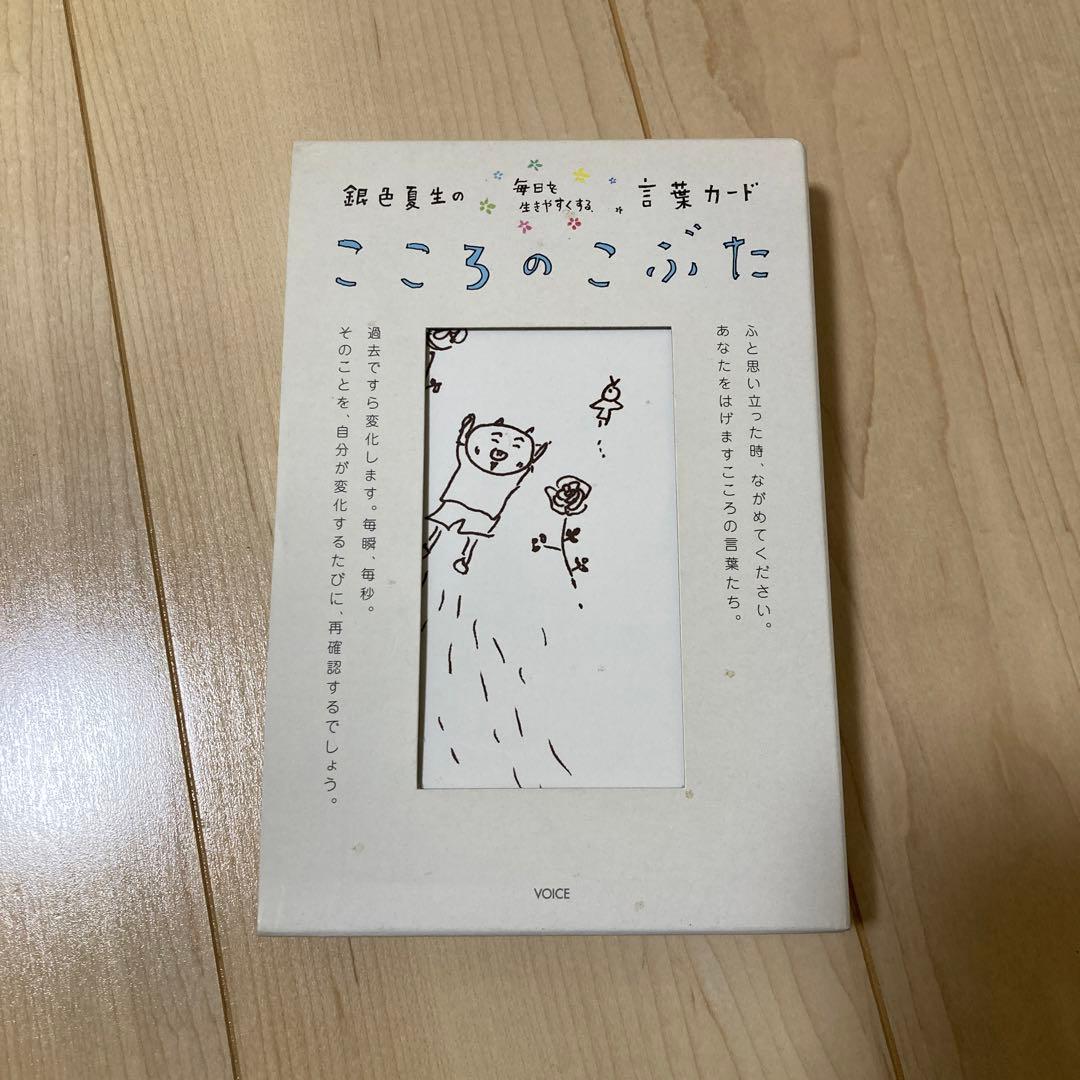 銀色夏生の
毎日を
生きやすくする、
言葉カード
こころのこぶた
ふと思い立った時、ながめてください。
あなたをはげますこころの言葉たち。
過去ですら変化します。毎瞬、毎秒。
そのことを、自分が変化するたびに、再確認するでしょう。
VOICE